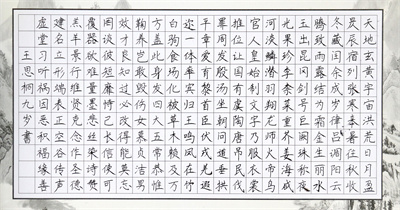 天地玄黄宇宙洪荒日月盈
昃辰宿列张寒来暑往秋收
冬藏闰余成岁律吕调阳云
腾致雨露结为霜金生丽水
玉出昆冈剑号巨阙珠称夜
光果珍李柰菜重芥姜海咸
河淡鳞潜羽翔龙师火帝鸟
官人皇始制文字乃服衣裳
推位让国有虞陶唐吊民伐
罪周发殷汤坐朝问道垂拱
平章爱育黎首臣伏戎羌遐
迩一体率宾归王鸣凤在竹
白驹食场化被草木赖及万
方盖此身发四大五常恭惟
鞠养岂敢毁伤女慕贞洁男
效才良知过必改得能莫忘
罔谈彼短靡恃己长信使可
覆器欲难量墨悲丝染诗赞
羔羊景行维贤克念作圣德
建名立形端表正空谷传声
虚堂习听祸因恶积福缘善
王思桐九岁书